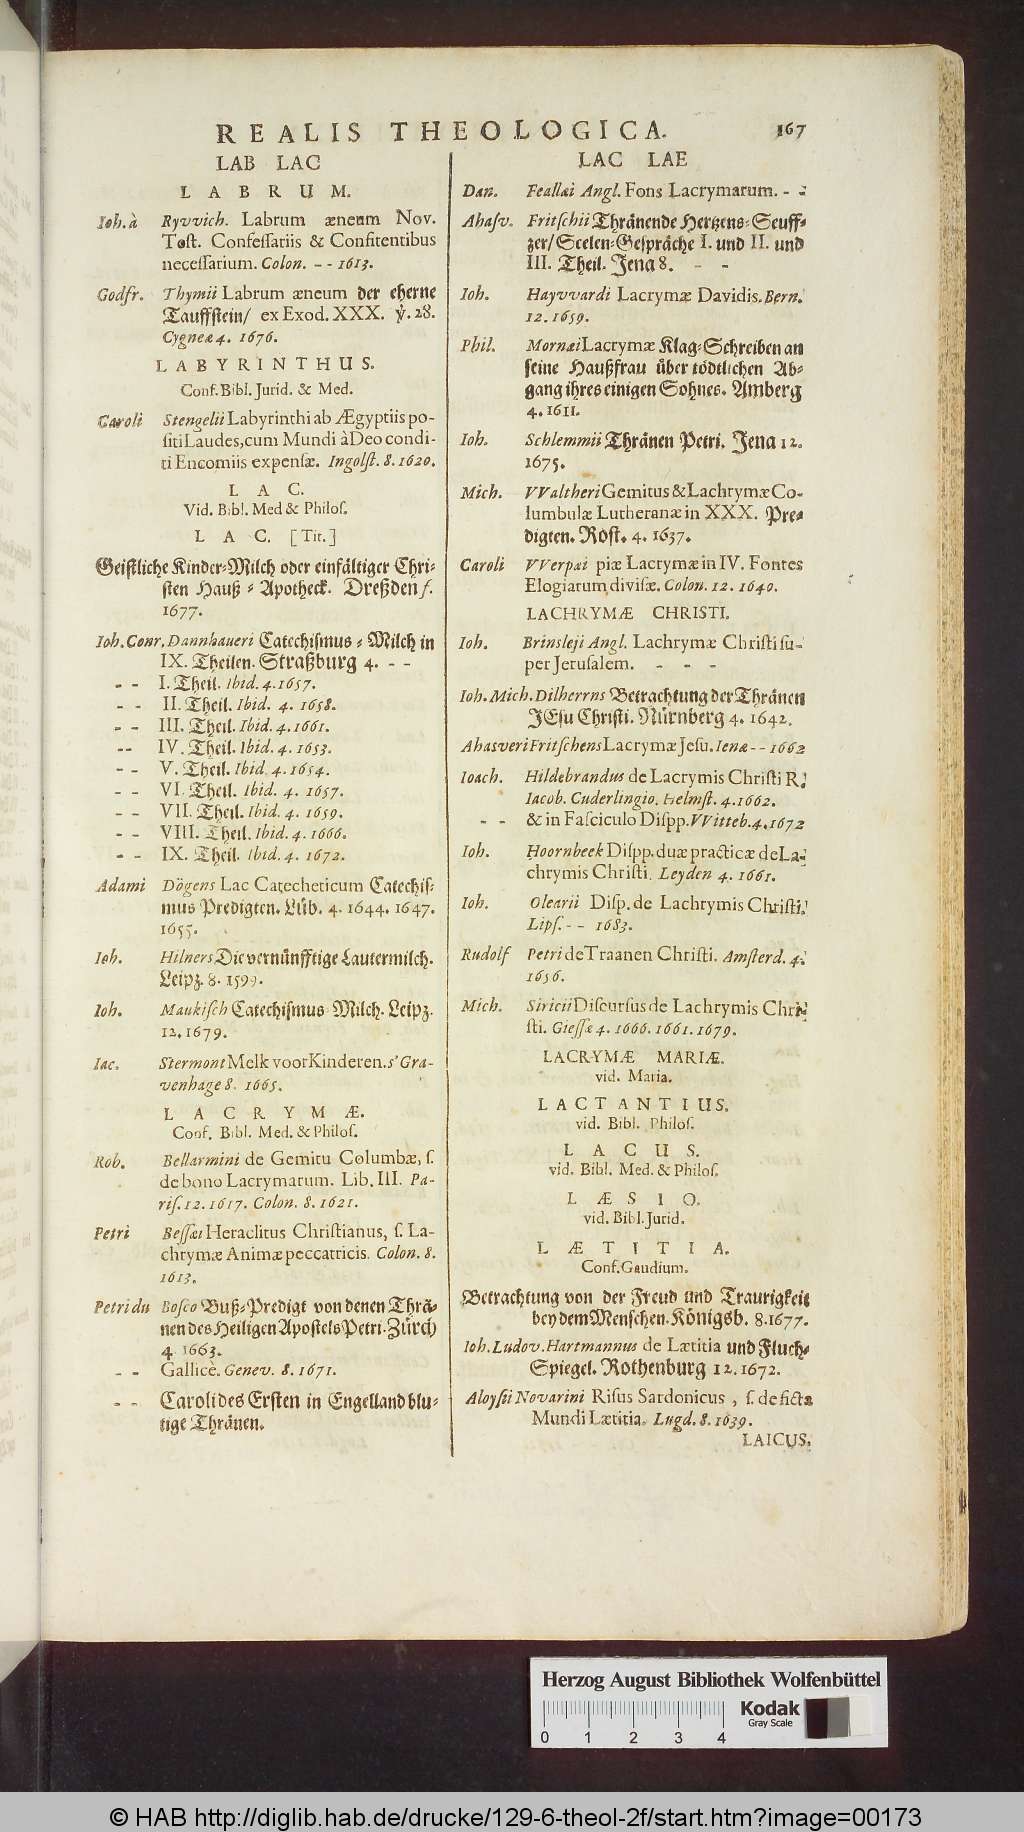 REALIS THEOLOGICA. 167
LAB LAC
LABRUM.
Ioh. à Ryvvich. Labrum æneum Nov.
Test. Confeſſariis & Confitentibus
neceſſarium. Colon. - - 1613.
Godfr. Thymii Labrum æneum der eherne
Tauffſtein/ ex Exod. XXX. ℣. 28.
Cygneæ 4. 1676.
LABYRINTHUS.
Conf. Bibl. Jurid. & Med.
Caroli Stengelii Labyrinthi ab Ægyptiis po-
ſiti Laudes, cum Mundi à Deo condi-
ti Encomiis expenſæ. Ingolſt. 8. 1620.
LAC.
Vid. Bibl. Med & Philoſ.
LAC. [Tit.]
Geiſtliche Kinder-Milch oder einfältiger Chri-
ſten Hauß-Apotheck. Dreßden f.
1677.
Ioh. Conr. Dannhaueri Catechiſmus-Milch in
IX. Theilen. Straßburg 4. - -
- - I. Theil. Ibid. 4. 1657.
- - II. Theil. Ibid. 4. 1658.
- - III. Theil. Ibid. 4. 1661.
- - IV. Theil. Ibid. 4. 1653.
- - V. Theil. Ibid. 4. 1654.
- - VI. Theil. Ibid. 4. 1657.
- - VII. Theil. Ibid. 4. 1659.
- - VIII. Theil. Ibid. 4. 1666.
- - IX. Theil. Ibid. 4. 1672.
Adami Dögens Lac Catecheticum Catechiſ-
mus Predigten. Lüb. 4. 1644. 1647.
1655.
Ioh. Hilners Die vernünfftige Lautermilch.
Leipz. 8. 1599.
Ioh. Maukiſch Catechiſmus Milch. Leipz.
12. 1679.
Iac. Stermont Melk voor Kinderen. s'Gra-
venhage 8. 1665.
LACRYMÆ.
Conf. Bibl. Med. & Philoſ.
Rob. Bellarmini de Gemitu Columbæ, ſ.
de bono Lacrymarum. Lib. III. Pa-
riſ. 12. 1617. Colon. 8. 1621.
Petri Beſſæi Heraclitus Chriſtianus, ſ. La-
chrymæ Animæ peccatricis. Colon. 8.
1613.
Petri du Boſco Buß-Predigt von denen Thrä-
nen des Heiligen Apoſtels Petri. Zürch
4. 1663.
- - Gallicè. Genev. 8. 1671.
- - Caroli des Erſten in Engelland blu-
tige Thränen.
LAC LAE
Dan. Feallæi Angl. Fons Lacrymarum. - -
Ahaſv. Fritſchii Thränende Hertzens-Seuff-
zer/ Seelen-Geſpräche I. und II. und
III. Theil. Jena 8. - -
Ioh. Hayvvardi Lacrymæ Davidis. Bern.
12. 1659.
Phil. Mornæi Lacrymæ Klag-Schreiben an
ſeine Haußfrau über tödtlichen Ab-
gang ihres einigen Sohnes. Amberg
4. 1611.
Ioh. Schlemmii Thränen Petri. Jena 12.
1675.
Mich. VValtheri Gemitus & Lachrymæ Co-
lumbulæ Lutheranæ in XXX. Pre-
digten. Roſt. 4. 1637.
Caroli VVerpæi piæ Lacrymæ in IV. Fontes
Elogiarum diviſæ. Colon. 12. 1640.
LACHRYMÆ CHRISTI.
Ioh. Brinsleji Angl. Lachrymæ Chriſti ſu-
per Jeruſalem. - - -
Ioh. Mich. Dilherrns Betrachtung der Thränen
JEſu Chriſti. Nürnberg 4. 1642.
Ahasveri Fritſchens Lacrymæ Jeſu. Ienæ - - 1662
Ioach. Hildebrandus de Lacrymis Chriſti R.
Iacob. Cuderlingio. Helmſt. 4. 1662.
- - & in Faſciculo Diſpp. VVitteb. 4. 1672
Ioh. Hoornbeek Diſpp. duæ practicæ de La-
chrymis Chriſti. Leyden 4. 1661.
Ioh. Olearii Diſp. de Lachrymis Chriſti.
Lipſ. - - 1683.
Rudolf Petri de Traanen Chriſti. Amſterd. 4.
1656.
Mich. Siricii Diſcurſus de Lachrymis Chri-
ſti. Gieſſæ 4. 1666. 1661. 1679.
LACRYMÆ MARIÆ.
vid. Maria.
LACTANTIUS.
vid. Bibl. Philoſ.
LACUS.
vid. Bibl. Med. & Philoſ.
LÆSIO.
vid. Bibl. Jurid.
LÆTITIA.
Conf. Gaudium.
Betrachtung von der Freud und Traurigkeit
bey dem Menſchen. Königsb. 8. 1677.
Ioh. Ludov. Hartmannus de Lætitia und Fluch-
Spiegel. Rothenburg 12. 1672.
Aloyſii Novarini Riſus Sardonicus, ſ. de ficta
Mundi Lætitia. Lugd. 8. 1639.
LAICUS.
Herzog August Bibliothek Wolfenbüttel
0 1 2 3 4
Kodak
Gray Scale
© HAB http://diglib.hab.de/drucke/129-6-theol-2f/start.htm?image=00173